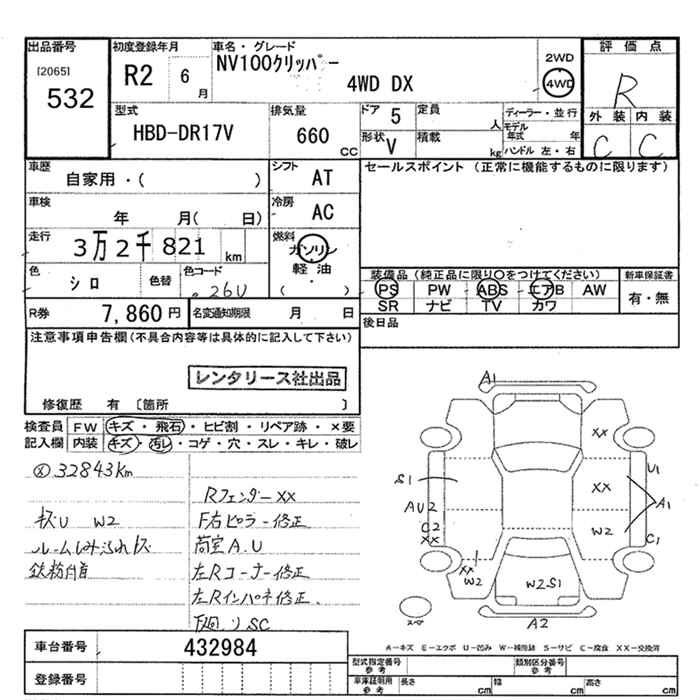 出品番号 初度登録年月 車名・グレード 評価点
[2065] 532 R2 6月 NV100クリッパー 4WD DX 2WD 4WD R
外装 内装
C C
型式 HBD-DR17V 排気量 660 CC ドア 5 定員 人 ディーラー・並行
形状 V 積載 kg モデル年式 年
ハンドル 左・右
車歴 自家用・( ) シフト AT セールスポイント (正常に機能するものに限ります)
車検 年 月( 日) 冷房 AC
走行 3万2千821 km 燃料 ガソリン 軽油 ・ ( )
色 シロ 色替 色コード 26U
装備品 (純正品に限り○をつけてください) 新車保証書
PS PW ABS エアB AW 有・無
SR ナビ TV カワ
R券 7,860円 名変通知期限 月 日 後日品
注意事項申告欄(不具合内容等は具体的に記入して下さい)
レンタリース社出品
修復歴 有 〔箇所 〕
検査員記入欄 FW キズ・飛石・ヒビ割・リペア跡・×要
内装 キズ・汚レ・コゲ・穴・スレ・キレ・破レ
32843km
Rフェンダー XX
キズU W2 F右ピラー修正
荷室 A.U
左Rコーナー修正
左Rインパネ修正
SC
A1
XX
S1 XX U1
AU2 A1
C2 W2
XX C1
XX
W2 W2S1
スペ A2
A－キズ E－エクボ U－凹み W－補修跡 S－サビ C－腐食 XX－交換済
車台番号 432984
登録番号
型式指定番号 参考 類別区分番号 参考
車庫証明用 参考 長さ cm 幅 cm 高さ cm